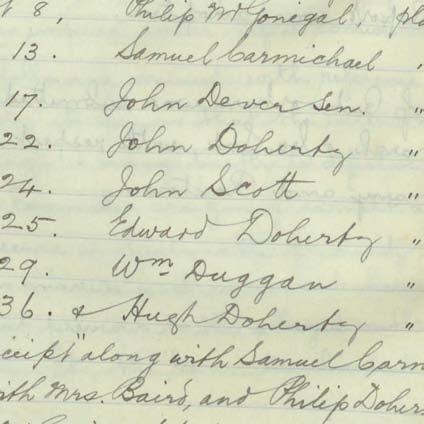 8, Philip McGonegal,
13. Samuel Carmichael "
17. John Dever Sen. "
22. John Doherty "
24. John Scott "
25. Edward Doherty "
29. Wm Duggan "
36. & Hugh Doherty "
ceipt" along with Samuel Carm
ith Mrs. Baird, and Philip Doher